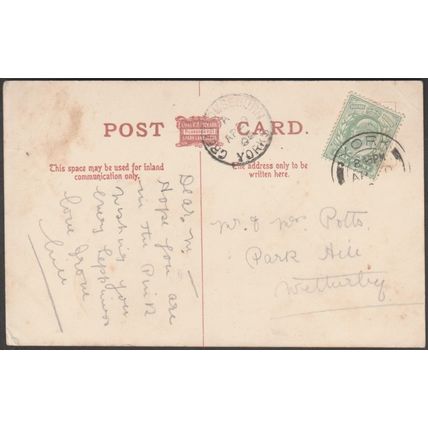 POST CARD.
This space may be used for inland
communication only.
The address only to be
written here.
YORK
PM
AP
YORKS
Dear M
Hope you are
in the Pink
wishing you
every happiness
love from
Mr & Mrs Potts.
Park Hill
Wetherby